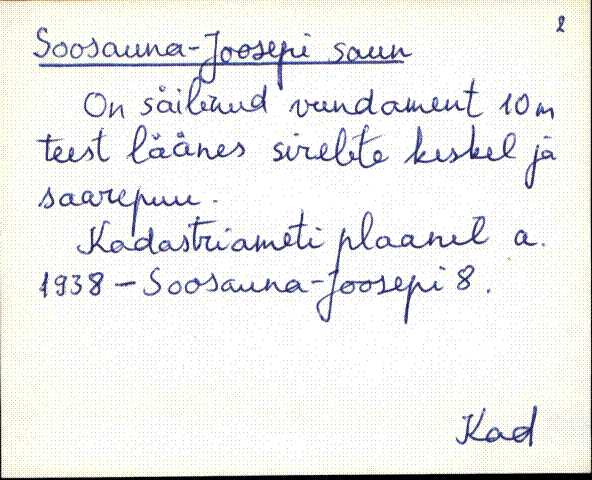 2
Soosauna-Joosepi saun
On säilinud vundament 10m
teest läänes sirelite keskel ja
saarepuu.
Kadastriameti plaanil a.
1938 – Soosauna-Joosepi 8.
Kad